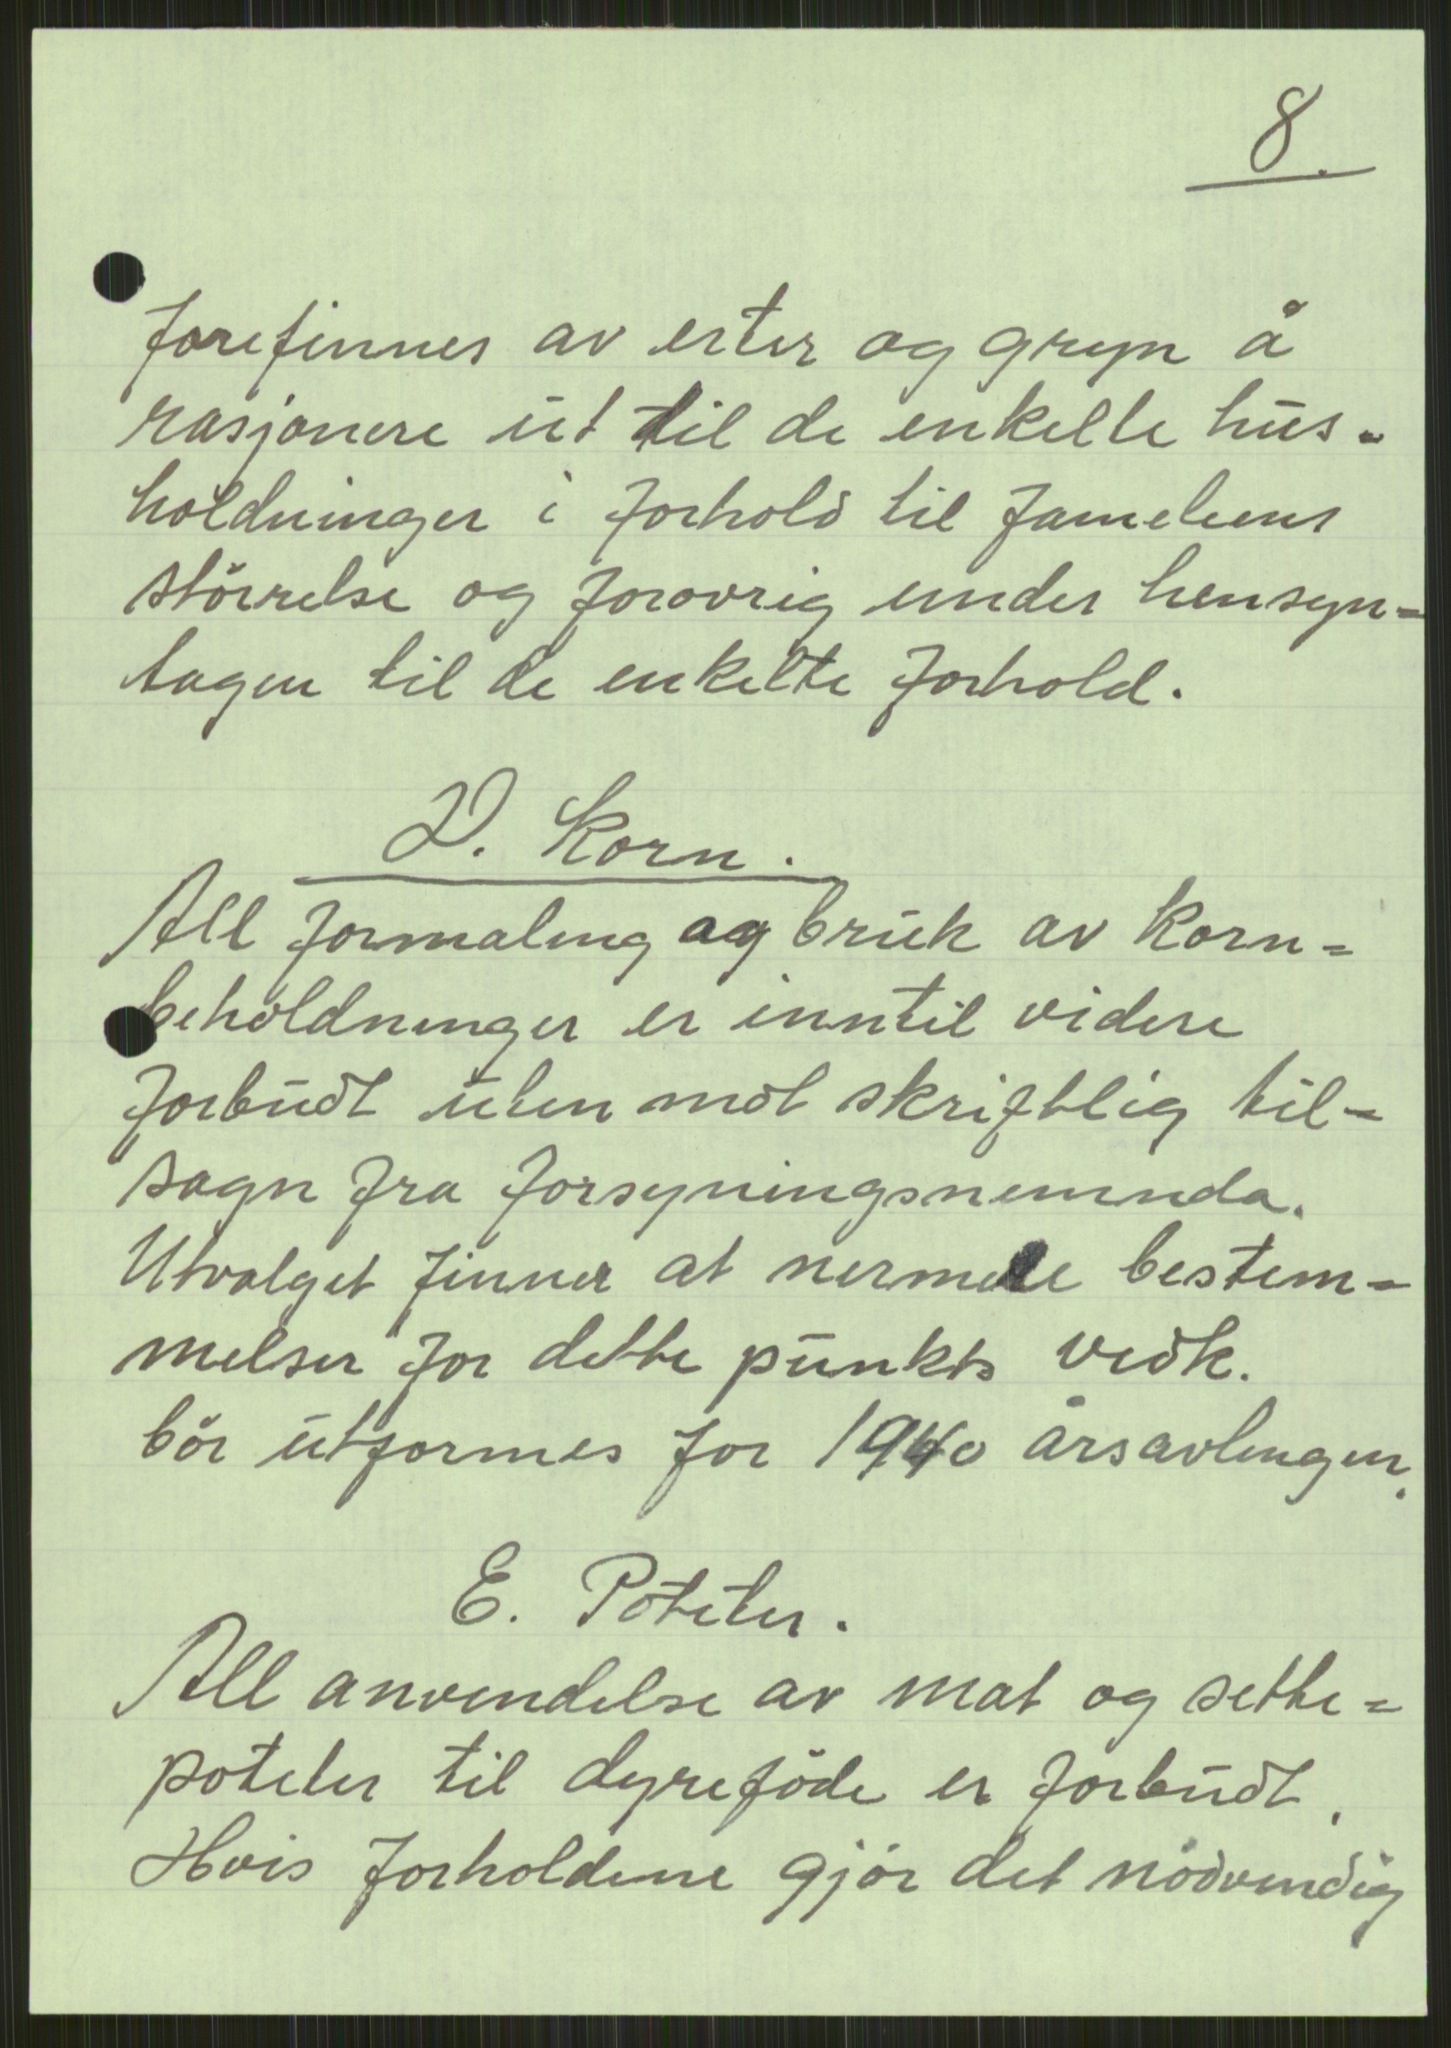 8.
forefinnes av erter og gryn å
rasjonere ut til de enkelte hus-
holdninger i forhold til fameliens
störrelse og forovrig under hensyn-
tagen til de enkelte forhold.
D. Korn.
All formaling og bruk av korn-
beholdninger er inntil videre
forbudt uten mot skriftlig til-
sagn fra forsyningsnemnda.
Utvalget finner at nermere bestem-
melser for dette punkts vedk.
bör utformes for 1940 årsavlingen.
E. Poteter.
All anvendelse av mat og sette-
poteter til dyreföde er forbudt.
Hvis forholdene gjör det nödvendig